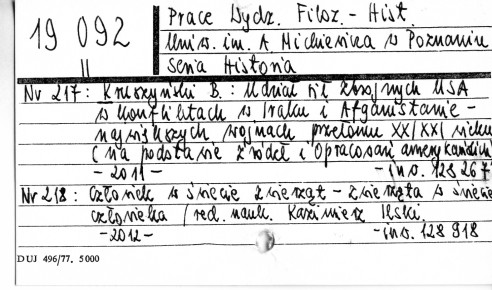 19 092
II
Prace Wydz. Filoz.-Hist.
Uniw. im. A. Mickiewicza w Poznaniu
Seria Historia
Nr 217: Kruszyński B.: Udział sił zbrojnych USA
w konfliktach w Iraku i Afganistanie -
największych wojnach przełomu XX/XXI wieku
(na podstawie źródeł i opracowań amerykańskich)
- 2011 - - inw. 128 267
Nr 218: Człowiek w świecie zwierząt - zwierzęta w świecie
człowieka / red. nauk. Kazimierz Ilski.
- 2012 - - inw. 128 918
DUJ 496/77. 5000